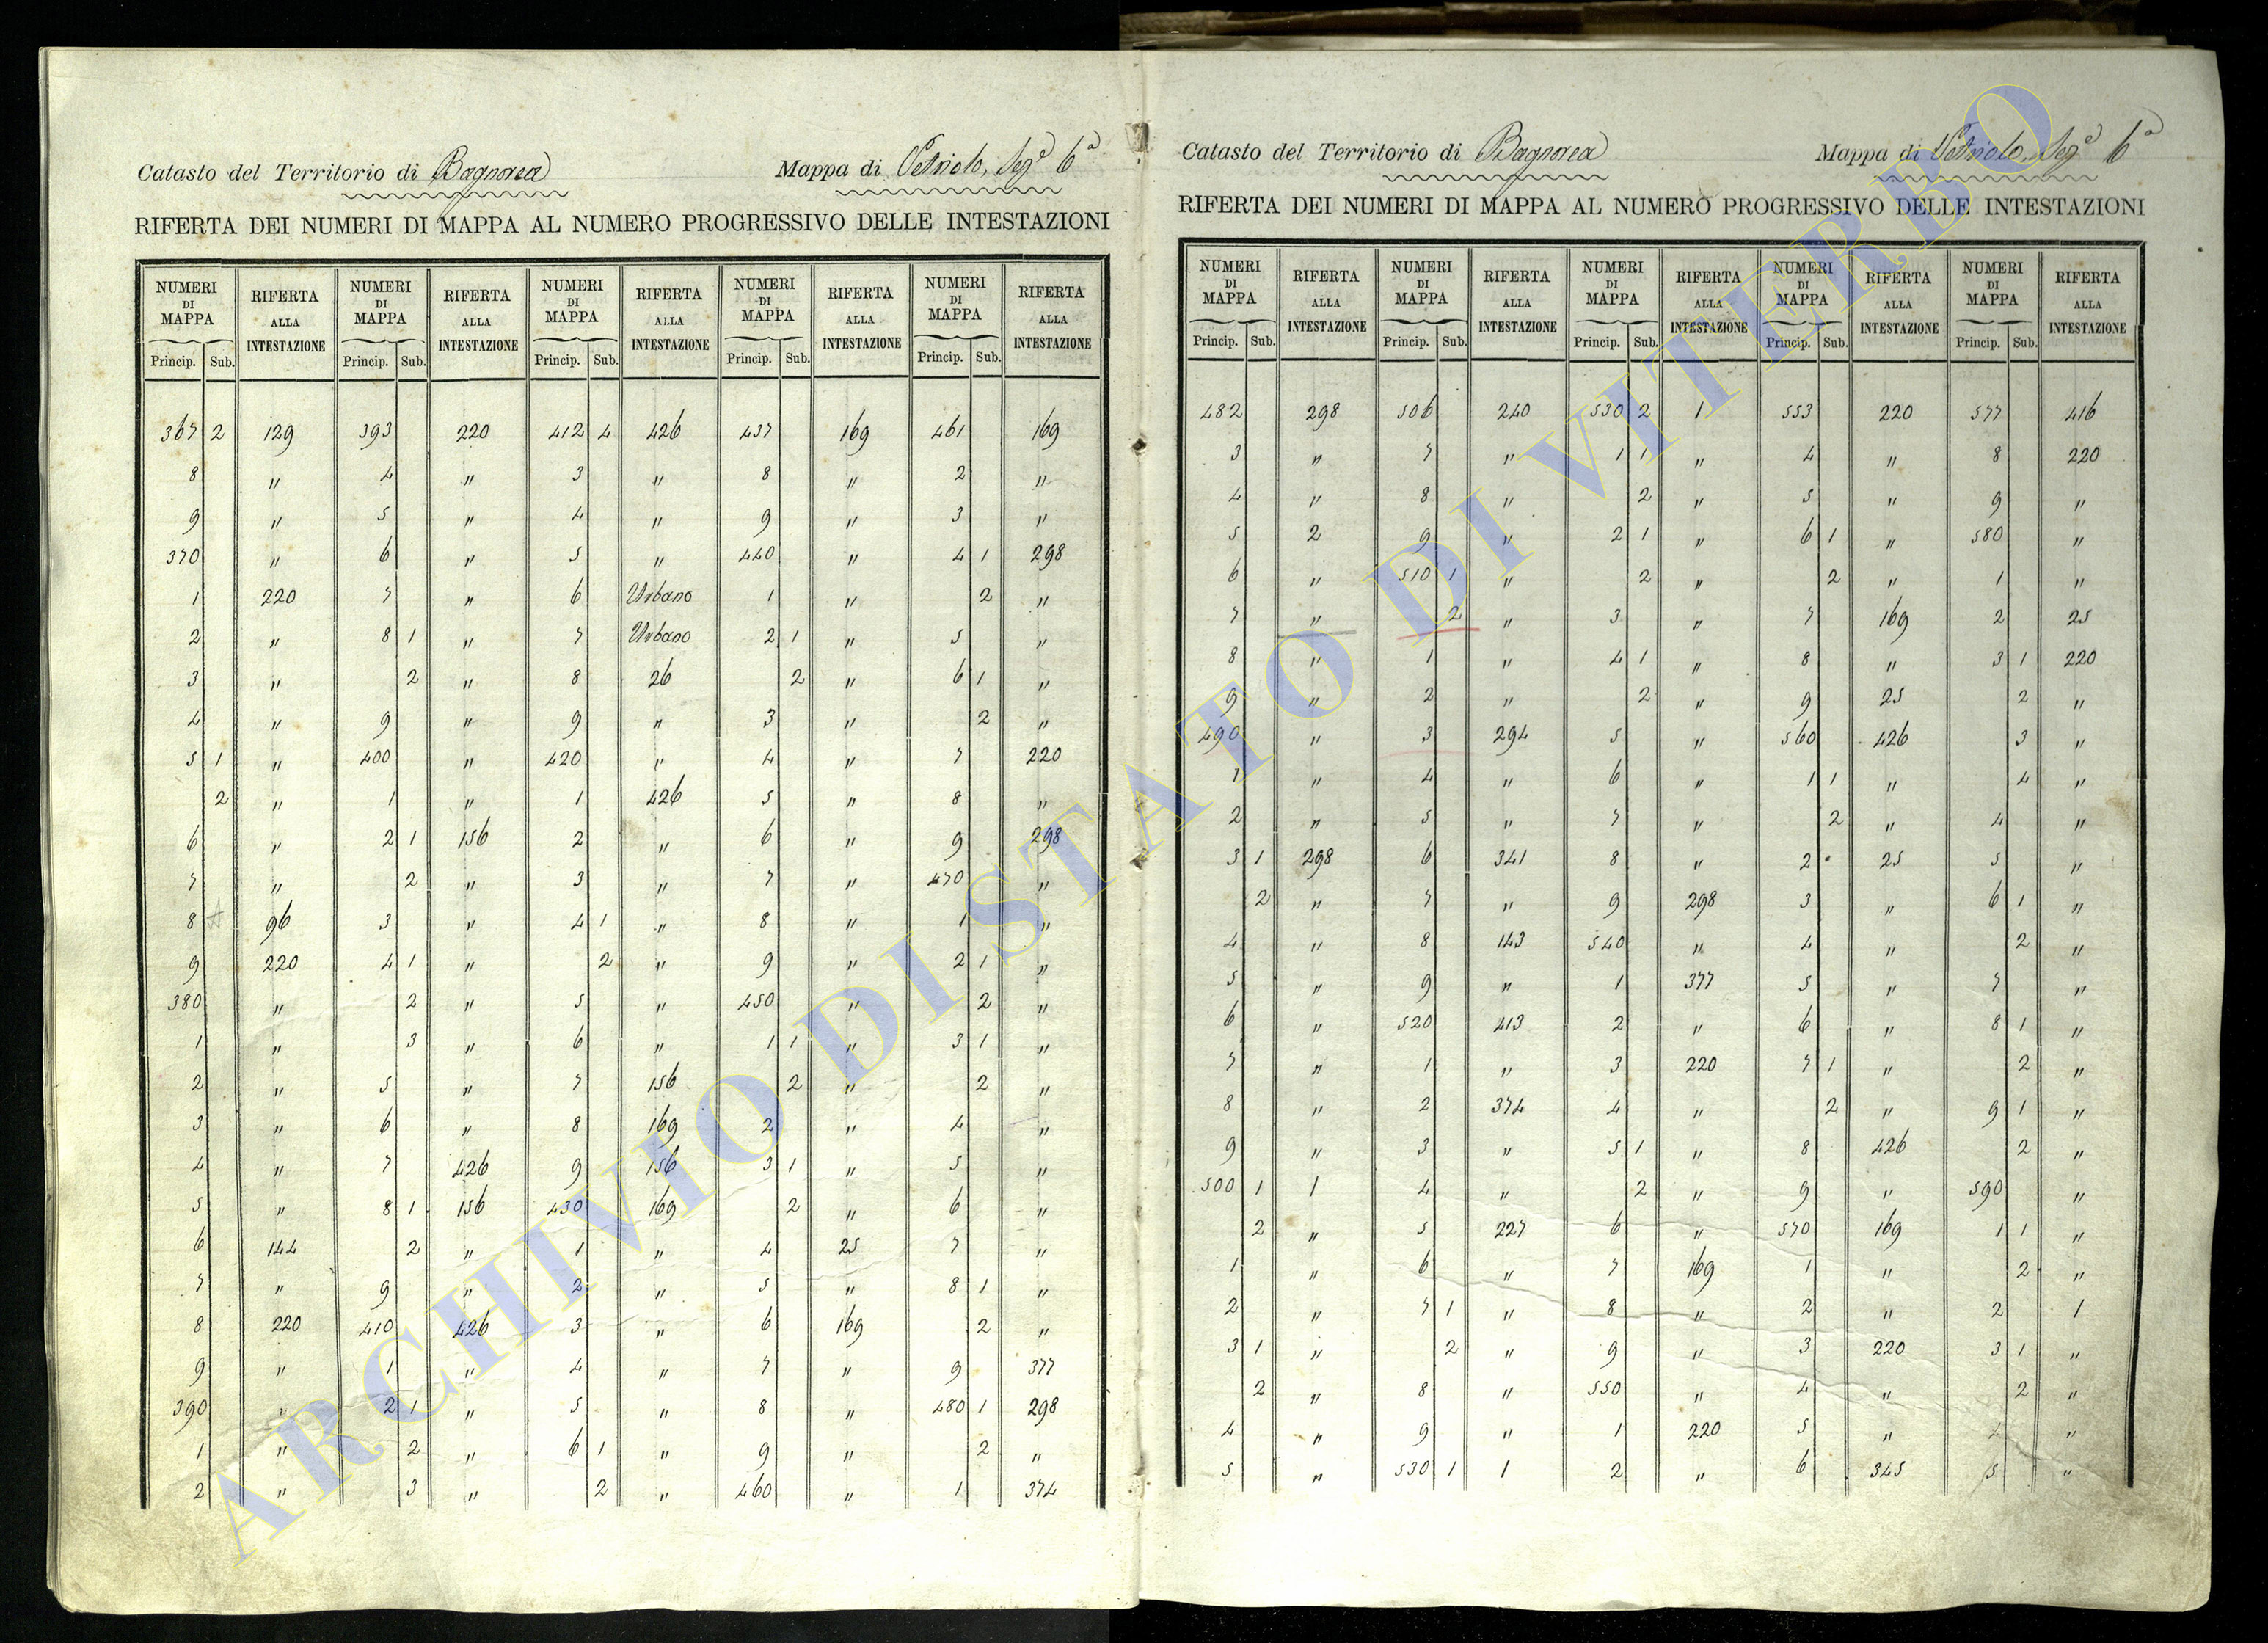 Catasto del Territorio di Bagnorea Mappa di Vetriolo, Sez.e 6a
RIFERTA DEI NUMERI DI MAPPA AL NUMERO PROGRESSIVO DELLE INTESTAZIONI
NUMERI DI MAPPA RIFERTA ALLA INTESTAZIONE NUMERI DI MAPPA RIFERTA ALLA INTESTAZIONE NUMERI DI MAPPA RIFERTA ALLA INTESTAZIONE NUMERI DI MAPPA RIFERTA ALLA INTESTAZIONE NUMERI DI MAPPA RIFERTA ALLA INTESTAZIONE
Princip. Sub. Princip. Sub. Princip. Sub. Princip. Sub. Princip. Sub.
367 2 129 393 220 412 4 426 437 169 461 169
8 " 4 " 3 " 8 " 2 "
9 " 5 " 4 " 9 " 3 "
370 " 6 " 5 " 440 " 4 1 298
1 220 7 " 6 Urbano 1 " 2 "
2 " 8 1 " 7 Urbano 2 1 " 5 "
3 " 2 " 8 26 2 " 6 1 "
4 " 9 " 9 " 3 " 2 "
5 1 " 400 " 420 " 4 " 7 220
2 " 1 " 1 426 5 " 8 "
6 " 2 1 156 2 " 6 " 9 298
7 " 2 " 3 " 7 " 470 "
8 A 96 3 " 4 1 " 8 " 1 "
9 220 4 1 " 2 " 9 " 2 1 "
380 " 2 " 5 " 450 " 2 "
1 " 3 " 6 " 1 1 " 3 1 "
2 " 5 " 7 156 2 " 2 "
3 " 6 " 8 169 2 " 4 "
4 " 7 426 9 156 3 1 " 5 "
5 " 8 1 156 430 169 2 " 6 "
6 144 2 " 1 " 4 25 7 "
7 " 9 " 2 " 5 " 8 1 "
8 220 410 426 3 " 6 169 2 "
9 " 1 " 4 " 7 " 9 377
390 " 2 1 " 5 " 8 " 480 1 298
1 " 2 " 6 1 " 9 " 2 "
2 " 3 " 2 " 460 " 1 374
Catasto del Territorio di Bagnorea Mappa di Vetriolo, Sez.e 6a
RIFERTA DEI NUMERI DI MAPPA AL NUMERO PROGRESSIVO DELLE INTESTAZIONI
NUMERI DI MAPPA RIFERTA ALLA INTESTAZIONE NUMERI DI MAPPA RIFERTA ALLA INTESTAZIONE NUMERI DI MAPPA RIFERTA ALLA INTESTAZIONE NUMERI DI MAPPA RIFERTA ALLA INTESTAZIONE NUMERI DI MAPPA RIFERTA ALLA INTESTAZIONE
Princip. Sub. Princip. Sub. Princip. Sub. Princip. Sub. Princip. Sub.
482 298 506 240 530 2 1 553 220 577 416
3 " 7 " 1 1 " 4 " 8 220
4 " 8 " 2 " 5 " 9 "
5 2 9 " 2 1 " 6 1 " 580 "
6 " 510 1 " 2 " 2 " 1 "
7 " 2 " 3 " 7 169 2 25
8 " 1 " 4 1 " 8 " 3 1 220
9 " 2 " 2 " 9 25 2 "
490 " 3 294 5 " 560 426 3 "
1 " 4 " 6 " 1 1 " 4 "
2 " 5 " 7 " 2 " 4 "
3 1 298 6 341 8 " 2 25 5 "
2 " 7 " 9 298 3 " 6 1 "
4 " 8 143 540 " 4 " 2 "
5 " 9 " 1 377 5 " 7 "
6 " 520 413 2 " 6 " 8 1 "
7 " 1 " 3 220 7 1 " 2 "
8 " 2 374 4 " 2 " 9 1 "
9 " 3 " 5 1 " 8 426 2 "
500 1 1 4 " 2 " 9 " 590 "
2 " 5 227 6 " 570 169 1 1 "
1 " 6 " 7 169 1 " 2 "
2 " 7 1 " 8 " 2 " 2 1
3 1 " 2 " 9 " 3 220 3 1 "
2 " 8 " 550 " 4 " 2 "
4 " 9 " 1 220 5 " 4 "
5 " 530 1 1 2 " 6 345 5 "
ARCHIVIO DI STATO DI VITERBO